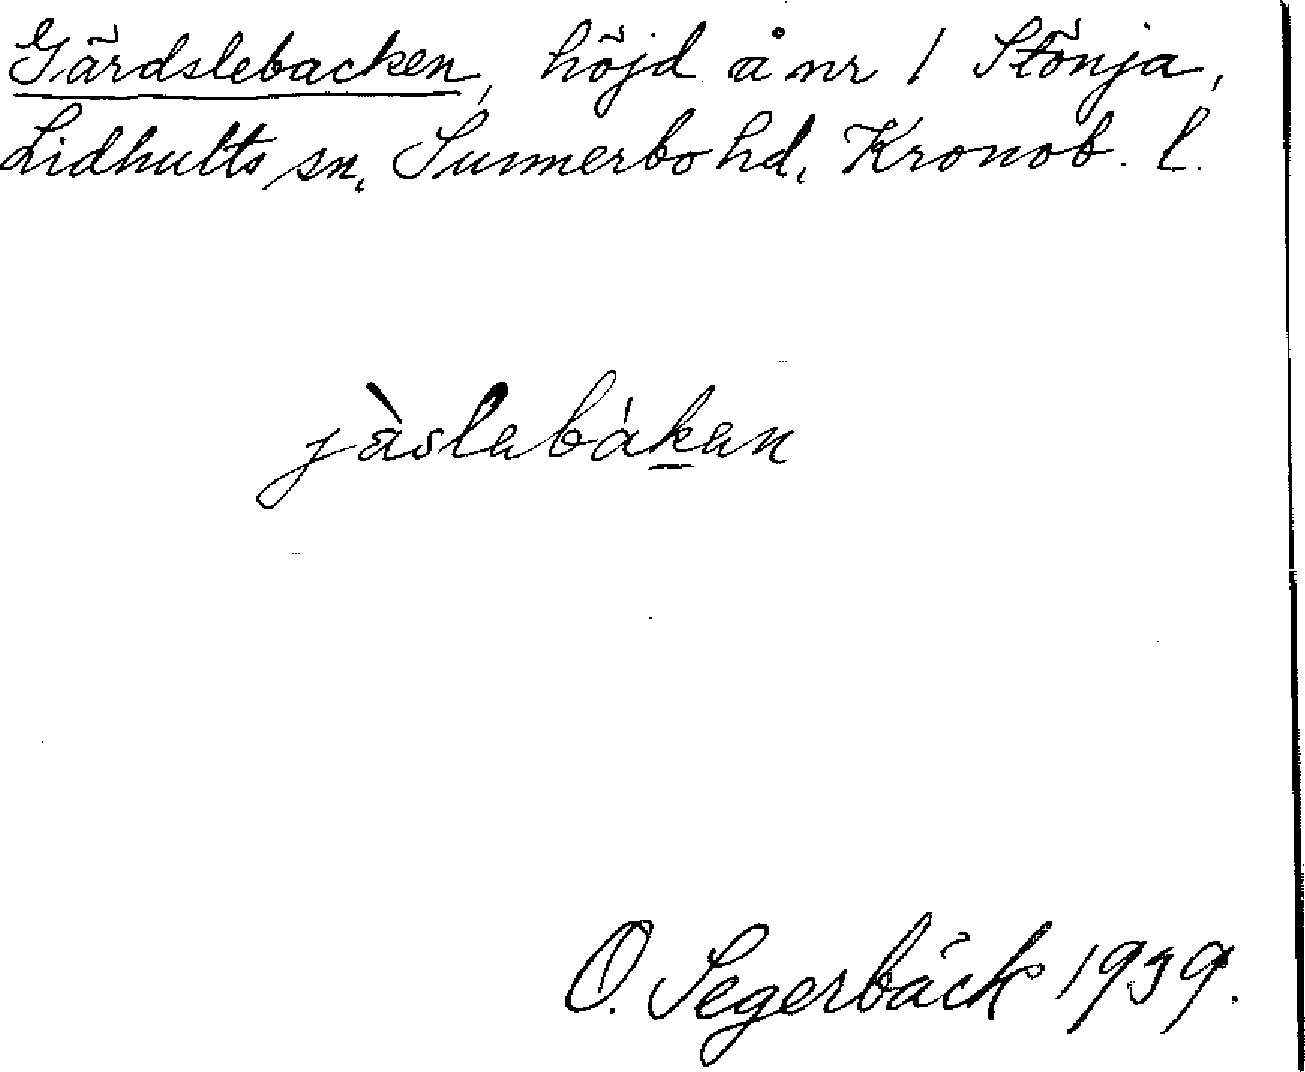 Gärdslebacken, höjd å nr 1 Stönja,
Lidhults sn, Sunnerbo hd, Kronob. l.
jàslabákan
O. Segerbäck 1939.